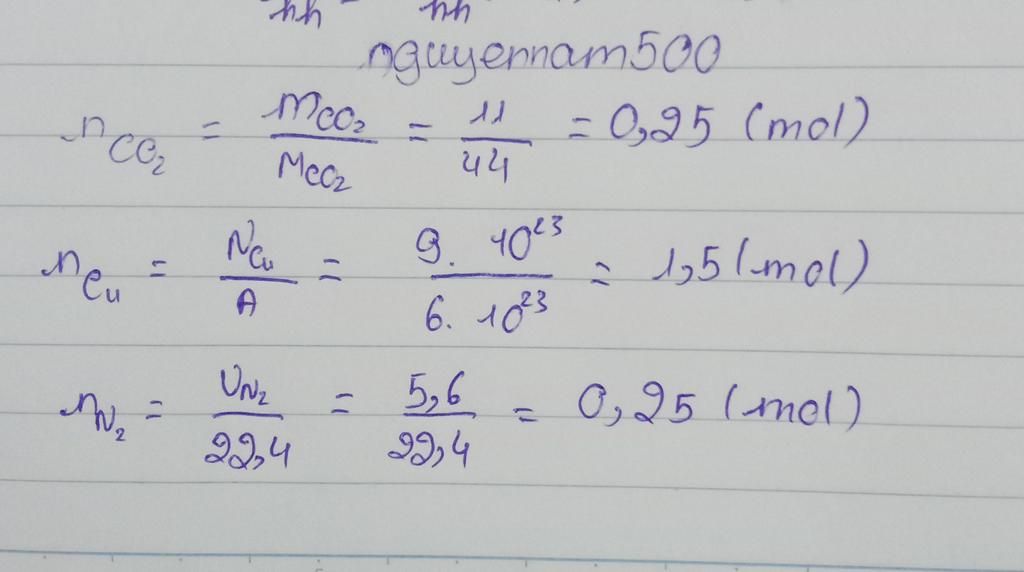 hh hh
nguyennam500
n_{CO_2} = \frac{m_{CO_2}}{M_{CO_2}} = \frac{11}{44} = 0,25 (mol)
n_{Cu} = \frac{N_{Cu}}{A} = \frac{9. 10^{23}}{6. 10^{23}} = 1,5 (mol)
n_{N_2} = \frac{V_{N_2}}{22,4} = \frac{5,6}{22,4} = 0,25 (mol)